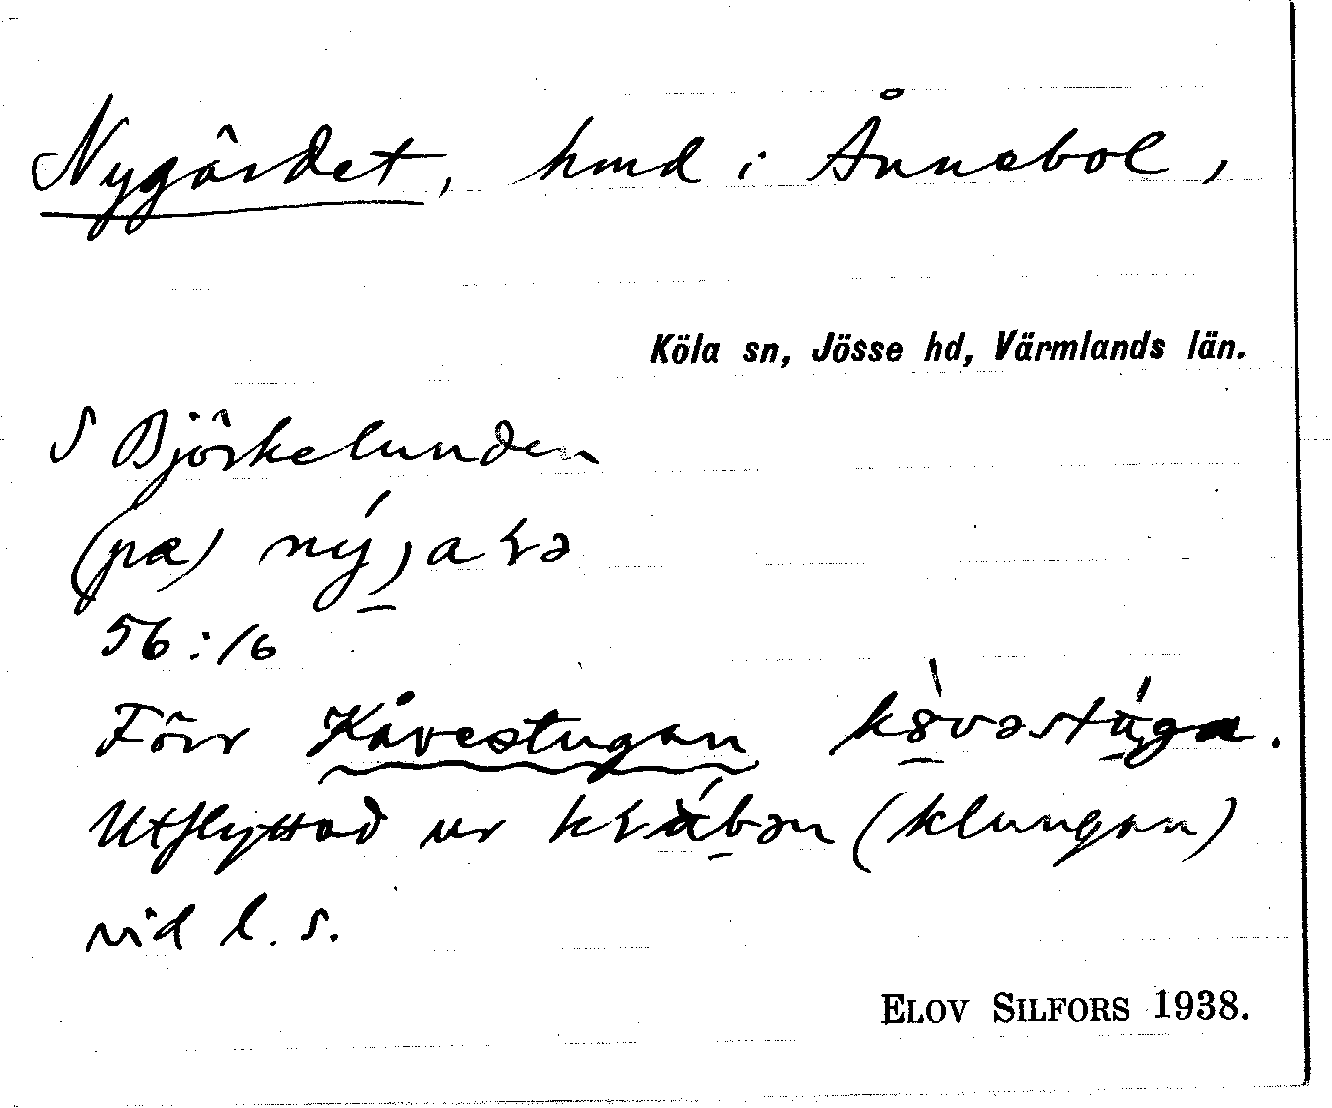 Nygärdet, hmd i Ånnebol,
Köla sn, Jösse hd, Värmlands län.
S Björkelunden
(pa)
56:16
Förr Kåvestugan
Utflyttad ur (klungan)
vid l. s.
ELOV SILFORS 1938.